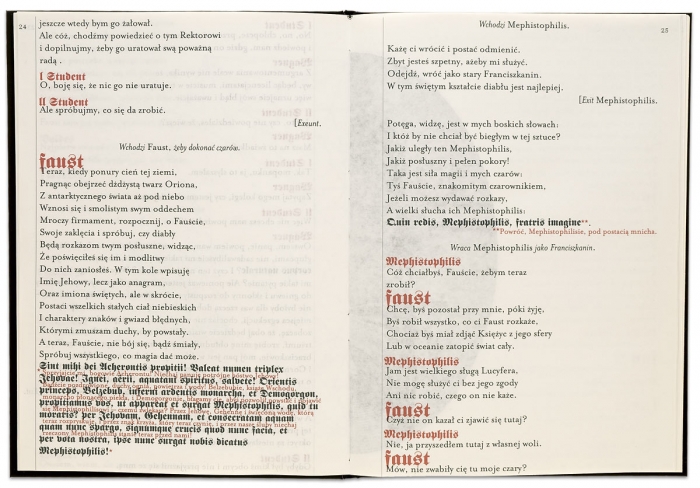 24
jeszcze wtedy bym go żałował.
Ale cóż, chodźmy powiedzieć o tym Rektorowi
i dopilnujmy, żeby go uratował swą poważną
radą .
I Student
O, boję się, że nic go nie uratuje.
II Student
Ale spróbujmy, co się da zrobić.
[Exeunt.
Wchodzi Faust, żeby dokonać czarów.
faust
Teraz, kiedy ponury cień tej ziemi,
Pragnąc obejrzeć dżdżystą twarz Oriona,
Z antarktycznego świata aż pod niebo
Wznosi się i smolistym swym oddechem
Mroczy firmament, rozpocznij, o Fauście,
Swoje zaklęcia i spróbuj, czy diabły
Będą rozkazom twym posłuszne, widząc,
Że poświęciłeś się im i modlitwy
Do nich zaniosłeś. W tym kole wpisuję
Imię Jehowy, lecz jako anagram,
Oraz imiona świętych, ale w skrócie,
Postaci wszelkich stałych ciał niebieskich
I charaktery znaków i gwiazd błędnych,
Którymi zmuszam duchy, by powstały.
A teraz, Fauście, nie bój się, bądź śmiały,
Spróbuj wszystkiego, co magia dać może.
Sint mihi dei Acherontis propitii! Valeat numen triplex
Jehovae! Ignei, aerii, aquatani spiritus, salvete! Orientis
princeps, Belzebub, inferni ardentis monarcha, et Demogorgon,
propitiamus vos, ut appareat et surgat Mephistophilis, quid tu
moraris? per Jehovam, Gehennam, et consecratam aquam
quam nunc spargo, signumque crucis quod nunc facio, et
per vota nostra, ipse nunc surgat nobis dicatus
Mephistophilis!*
25
Wchodzi Mephistophilis.
Każę ci wrócić i postać odmienić.
Zbyt jesteś szpetny, ażeby mi służyć.
Odejdź, wróć jako stary Franciszkanin.
W tym świętym kształcie diabłu jest najlepiej.
[Exit Mephistophilis.
Potęga, widzę, jest w mych boskich słowach:
I któż by nie chciał być biegłym w tej sztuce?
Jakiż uległy ten Mephistophilis,
Jakiż posłuszny i pełen pokory!
Taka jest siła magii i mych czarów:
Tyś Fauście, znakomitym czarownikiem,
Jeżeli możesz wydawać rozkazy,
A wielki słucha ich Mephistophilis:
Quin redis, Mephistophilis, fratris imagine**.
**Powróć, Mephistophilisie, pod postacią mnicha.
Wraca Mephistophilis jako Franciszkanin.
Mephistophilis
Cóż chciałbyś, Fauście, żebym teraz
zrobił?
faust
Chcę, byś pozostał przy mnie, póki żyję,
Byś robił wszystko, co ci Faust rozkaże,
Chociaż byś miał zdjąć Księżyc z jego sfery
Lub w oceanie zatopić świat cały.
Mephistophilis
Jam jest wielkiego sługą Lucyfera,
Nie mogę służyć ci bez jego zgody
Ani nic robić, czego on nie każe.
faust
Czyż nie on kazał ci zjawić się tutaj?
Mephistophilis
Nie, ja przyszedłem tutaj z własnej woli.
faust
Mów, nie zwabiły cię tu moje czary?